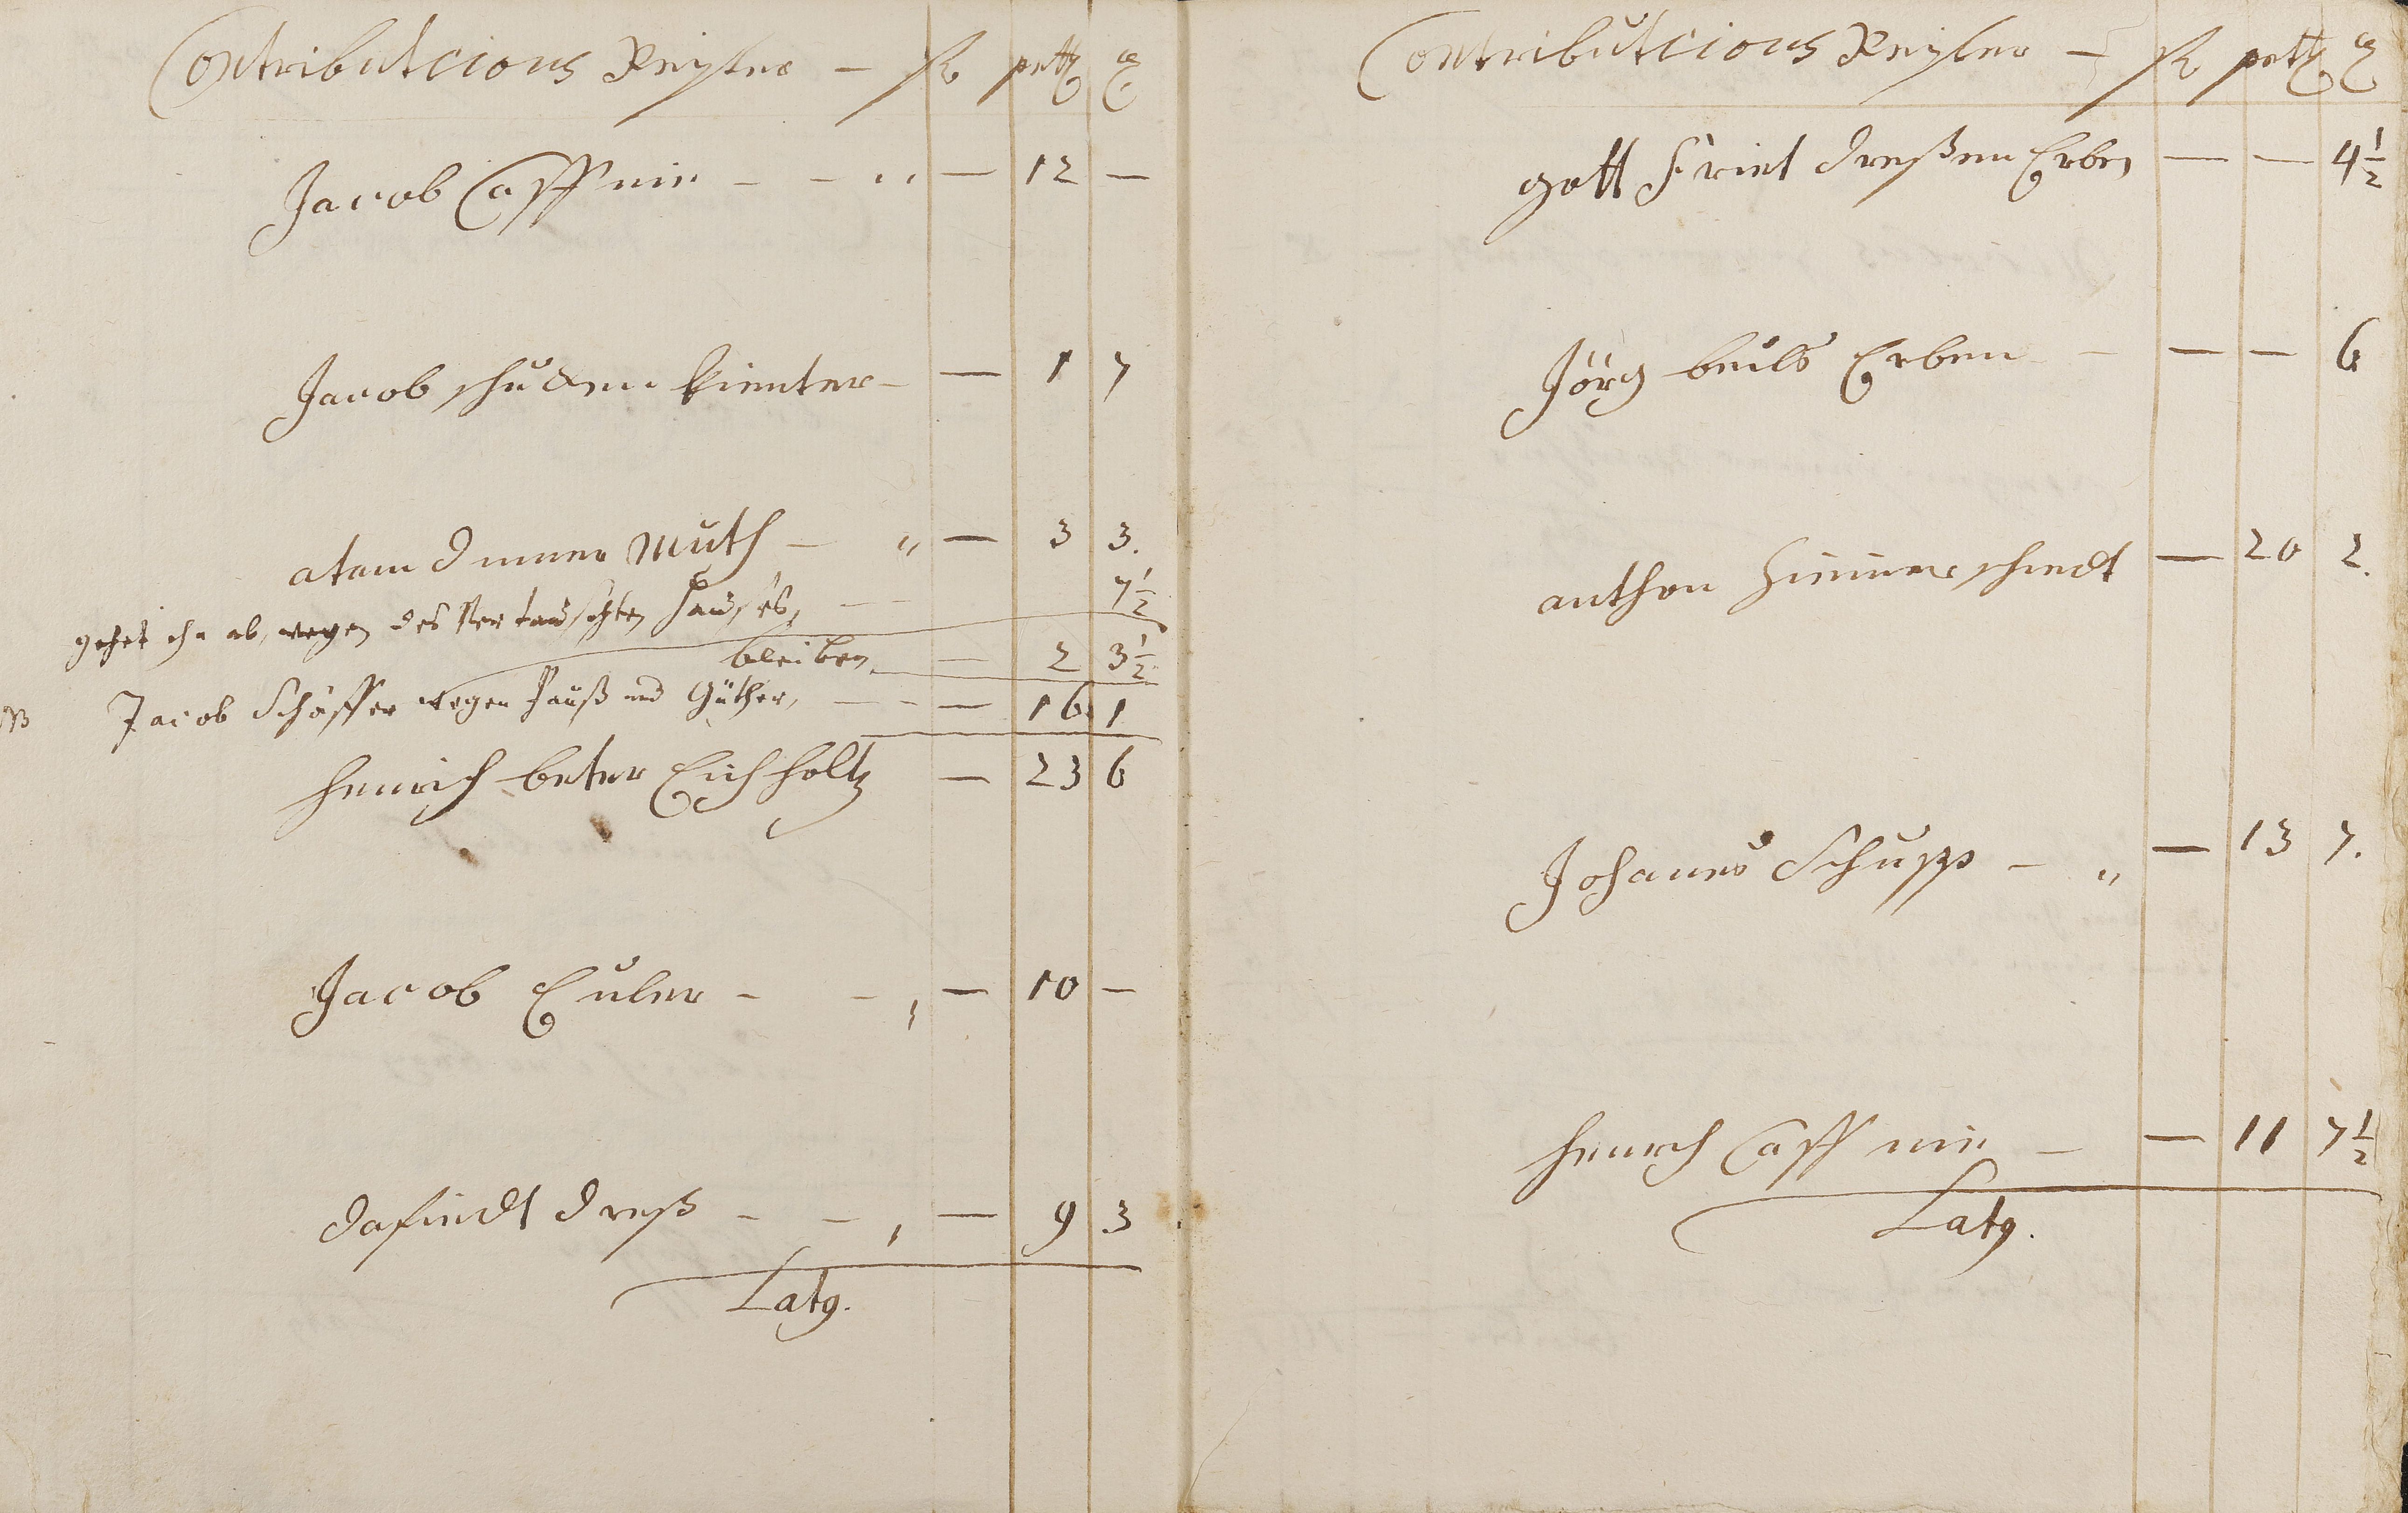 Contributcions Regster – fl pettz ₰
Jacob Caffnir – – – 12 –
Jacob schucken kienter – — 1 7
atam Dinner Muth – — 3 3.
gehet ihn ab, wegen des Vertauschten Haußes, — 7½
bleiben — 2 3½
NB Jacob Schäffer wegen Hauß und Güther, — — 16. 1
Henrich beter Eichholtz — 23 6
Jacob Euler – – — 10 –
dafiedt dreß – – — 9 3
Latg.
Contributcions Regster – fl pettz ₰
gott Friet dreßen Erben — — 4½
Jörg beils Erben – — — 6
anthon Himmerschiedt — 20 2.
Johanes Schupp – — 13 7.
Henrich Caffnir – — 11 7½
Latg.